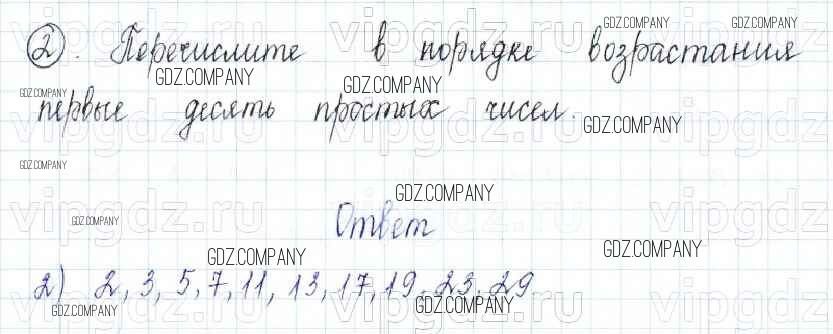 2. Перечислите в порядке возрастания
первые десять простых чисел.
Ответ
2) 2, 3, 5, 7, 11, 13, 17, 19, 23, 29
GDZ.COMPANY
GDZ.COMPANY
GDZ.COMPANY
GDZ.COMPANY
GDZ.COMPANY
GDZ.COMPANY
GDZ.COMPANY
GDZ.COMPANY
GDZ.COMPANY
GDZ.COMPANY
GDZ.COMPANY
GDZ.COMPANY
GDZ.COMPANY
vipgdz.ru